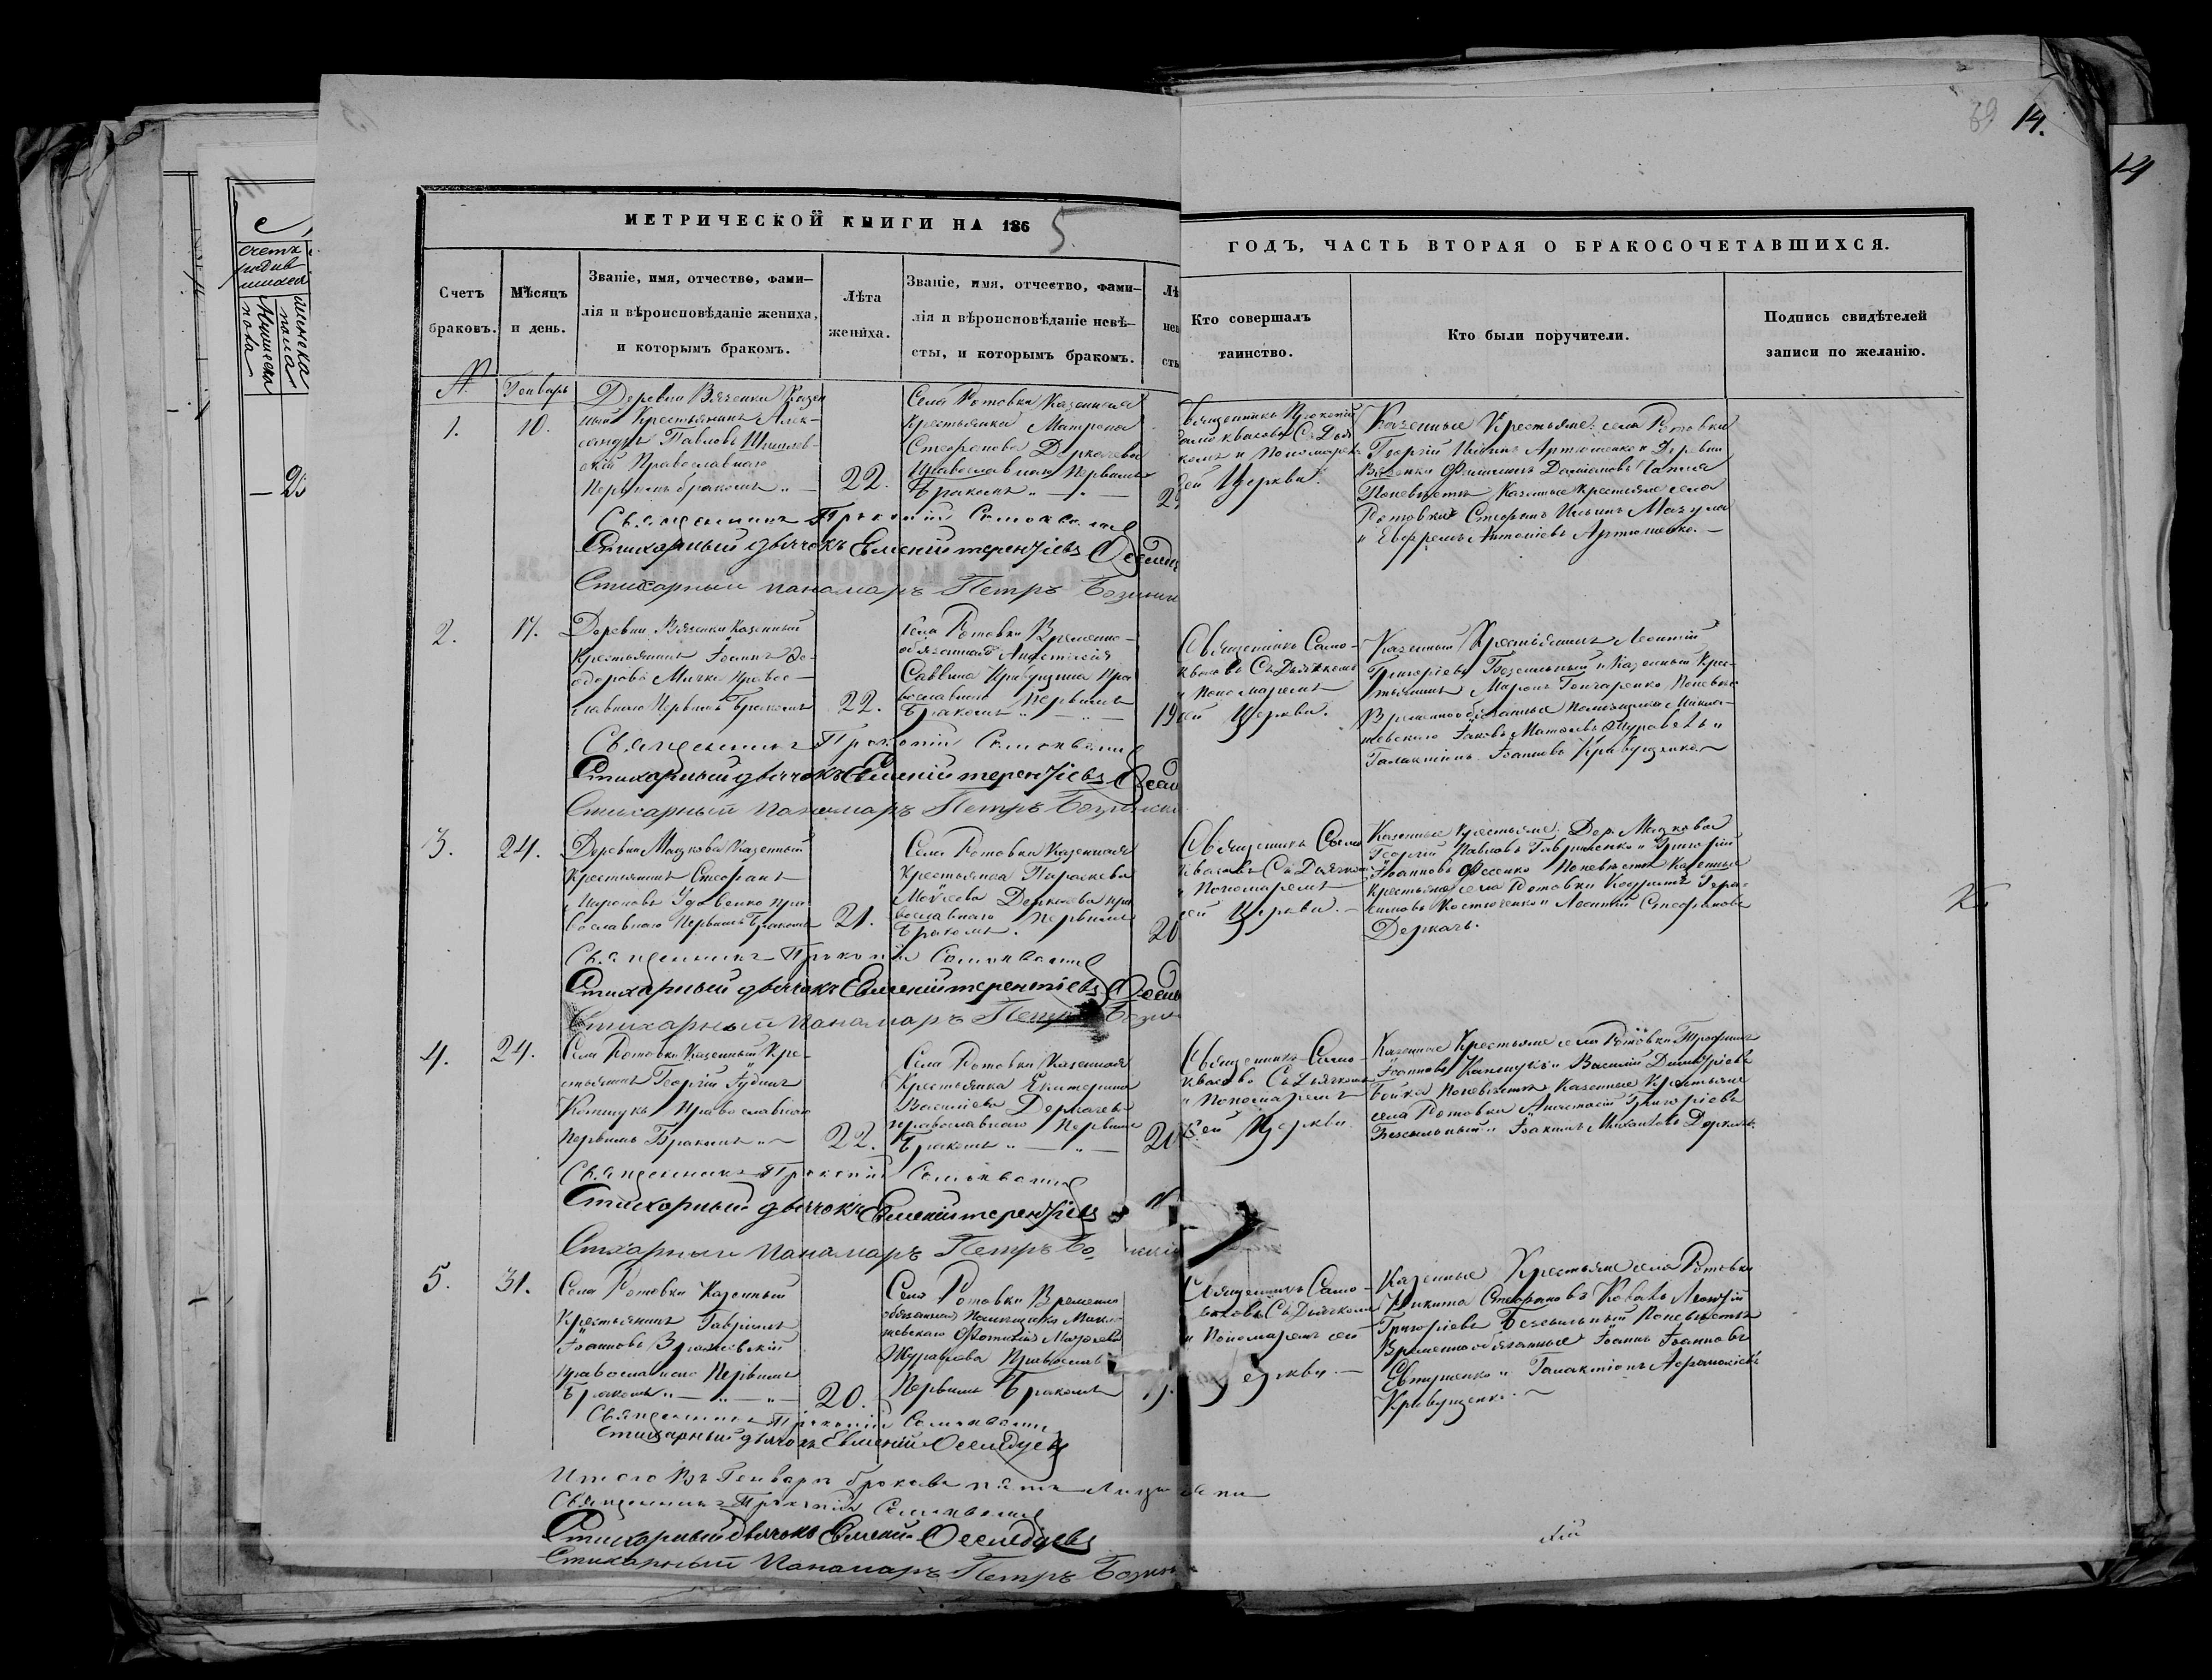 14.
14
МЕТРИЧЕСКОЙ КНИГИ НА 1865
ГОДЪ, ЧАСТЬ ВТОРАЯ О БРАКОСОЧЕТАВШИХСЯ.
Счетъ браковъ.
Мѣсяцъ и день.
Званіе, имя, отчество, фами-
лія и вѣроисповѣданіе жениха,
и которымъ бракомъ.
Лѣта
жениха.
Званіе, имя, отчество, фами-
лія и вѣроисповѣданіе невѣ-
сты, и которымъ бракомъ.
Кто совершалъ
таинство.
Кто были поручители.
Подпись свидѣтелей
записи по желанію.
Генварь
1.
10.
Деревни Вязенки Казен
ный Крестьянинъ Алек-
сандръ Павловъ
Православнаго
Первымъ бракомъ
22.
Села Ротовки Казенная
Крестьянка Матрона
Стефанова Деркачева
Православнаго Первымъ
Бракомъ
Священникъ Прокопій
Самоквасовъ Съ Дья
комъ и Пономаремъ
сей Церкви.
Казенные Крестьяне села Ротовки
Георгій Артюшенко и Деревни
Вязенки Филиппъ Даміановъ
Поневѣстѣ Казенные Крестьяне села
Ротовки Стефанъ Ильинъ Мазула
и Ефремъ Антоніевъ Артюшенко.
Священникъ Прокопій Самоквасовъ
Стихарный дьячокъ Евменій терентіевъ
Стихарный панамаръ Петръ
2.
17.
Деревни Вязенки Казенный
Крестьянинъ Іоаннъ Ѳе-
одоровъ Мичка Правос-
лавнаго Первымъ Бракомъ
22.
Села Ротовки Временно-
обязанная Анастасія
Саввина Кривущина Пра
вославнаго Первымъ
Бракомъ
19
Священникъ Само-
квасовъ Съ Дьячкомъ
и Пономаремъ
сей Церкви.
Казенный Крестьянинъ Леонтій
Григорьевъ Безсильный и Казенный Крес-
тьянинъ Миронъ Гончаренко Поневѣстѣ
Временнообязанные помѣщика
Іаковъ Матѳеевъ Журавель и
Галактіонъ Іоанновъ Кривущенко.
Священникъ Прокопій Самоквасовъ
Стихарный дьячокъ Евменій терентіевъ
Стихарный панамаръ Петръ
3.
24.
Деревни Мацкова Казенный
Крестьянинъ Стефанъ
Мироновъ Удовенко пра
вославнаго Первымъ Бракомъ
21.
Села Ротовки Казенная
Крестьянка Параскева
Моѵсеева Деркачева пра
вославнаго Первымъ
Бракомъ.
20
Священникъ Само
квасовъ Съ Дьячкомъ
и Пономаремъ
сей Церкви.
Казенные Крестьяне: Дер. Мацкова
Георгій Павловъ Гавриленко и Григорій
Іоанновъ Фесенко Поневѣстѣ Казенные
Крестьяне села Ротовки Кодратъ Гера-
симовъ Костюченко и Леонтій Стефановъ
Деркачъ.
Священникъ Прокопій Самоквасовъ
Стихарный дьячокъ Евменій терентіевъ
Стихарный панамаръ Петръ
4.
24.
Села Ротовки Казенный Кре-
стьянинъ Георгій Іудинъ
Православнаго
Первымъ Бракомъ
22.
Села Ротовки Казенная
Крестьянка Екатерина
Василіева Деркачева
православнаго Первымъ
Бракомъ
20
Священникъ Само-
квасовъ Съ Дьячкомъ
и Пономаремъ
Сей Церкви.
Казенные Крестьяне села Ротовки Трофимъ
Іоанновъ и Василій Димитріевъ
Бойко Поневѣстѣ Казенные Крестьяне
села Ротовки Анастасій Григоріевъ
Безсильный и Іоакимъ Михаиловъ Деркачъ.
Священникъ Прокопій Самоквасовъ
Стихарный дьячокъ Евменій терентіевъ
Стихарный панамаръ Петръ
5.
31.
Села Ротовки Казенный
Крестьянинъ Гавріилъ
Іоанновъ
Православнаго Первымъ
Бракомъ
20.
Села Ротовки Временно
обязанная Помѣщика
Матѳеева
Журавлева Православ
Первымъ Бракомъ
Священникъ Само-
квасовъ Съ Дьячкомъ
и Пономаремъ сей
Церкви.
Казенные Крестьяне села Ротовки
Никита Стефановъ Коваль Леонтій
Григорьевъ Безсильный Поневѣстѣ
Временнообязанные Іоаннъ Іоанновъ
Евтушенко и Галактіонъ Аѳанасіевъ
Кривущенко.
Священникъ Прокопій Самоквасовъ
Стихарный дьячокъ Евменій Оселедцевъ
Итого Въ Генварѣ браковъ пять
Священникъ Прокопій Самоквасовъ
Стихарный дьячокъ Евменій Оселедцевъ
Стихарный Панамаръ Петръ